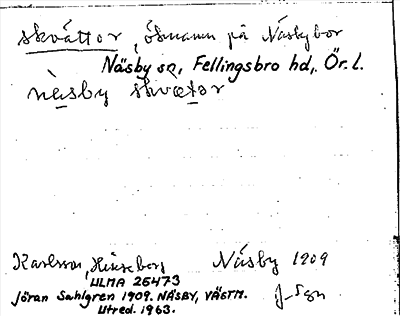 skvättor, öknamn på Näsbybor
Näsby sn, Fellingsbro hd, Ör. l.
näsby skvætor
Karlsson, Näsby 1909
ULMA 25473
Jöran Sahlgren 1909. NÄSBY, VÄSTM.
Utred. 1963.